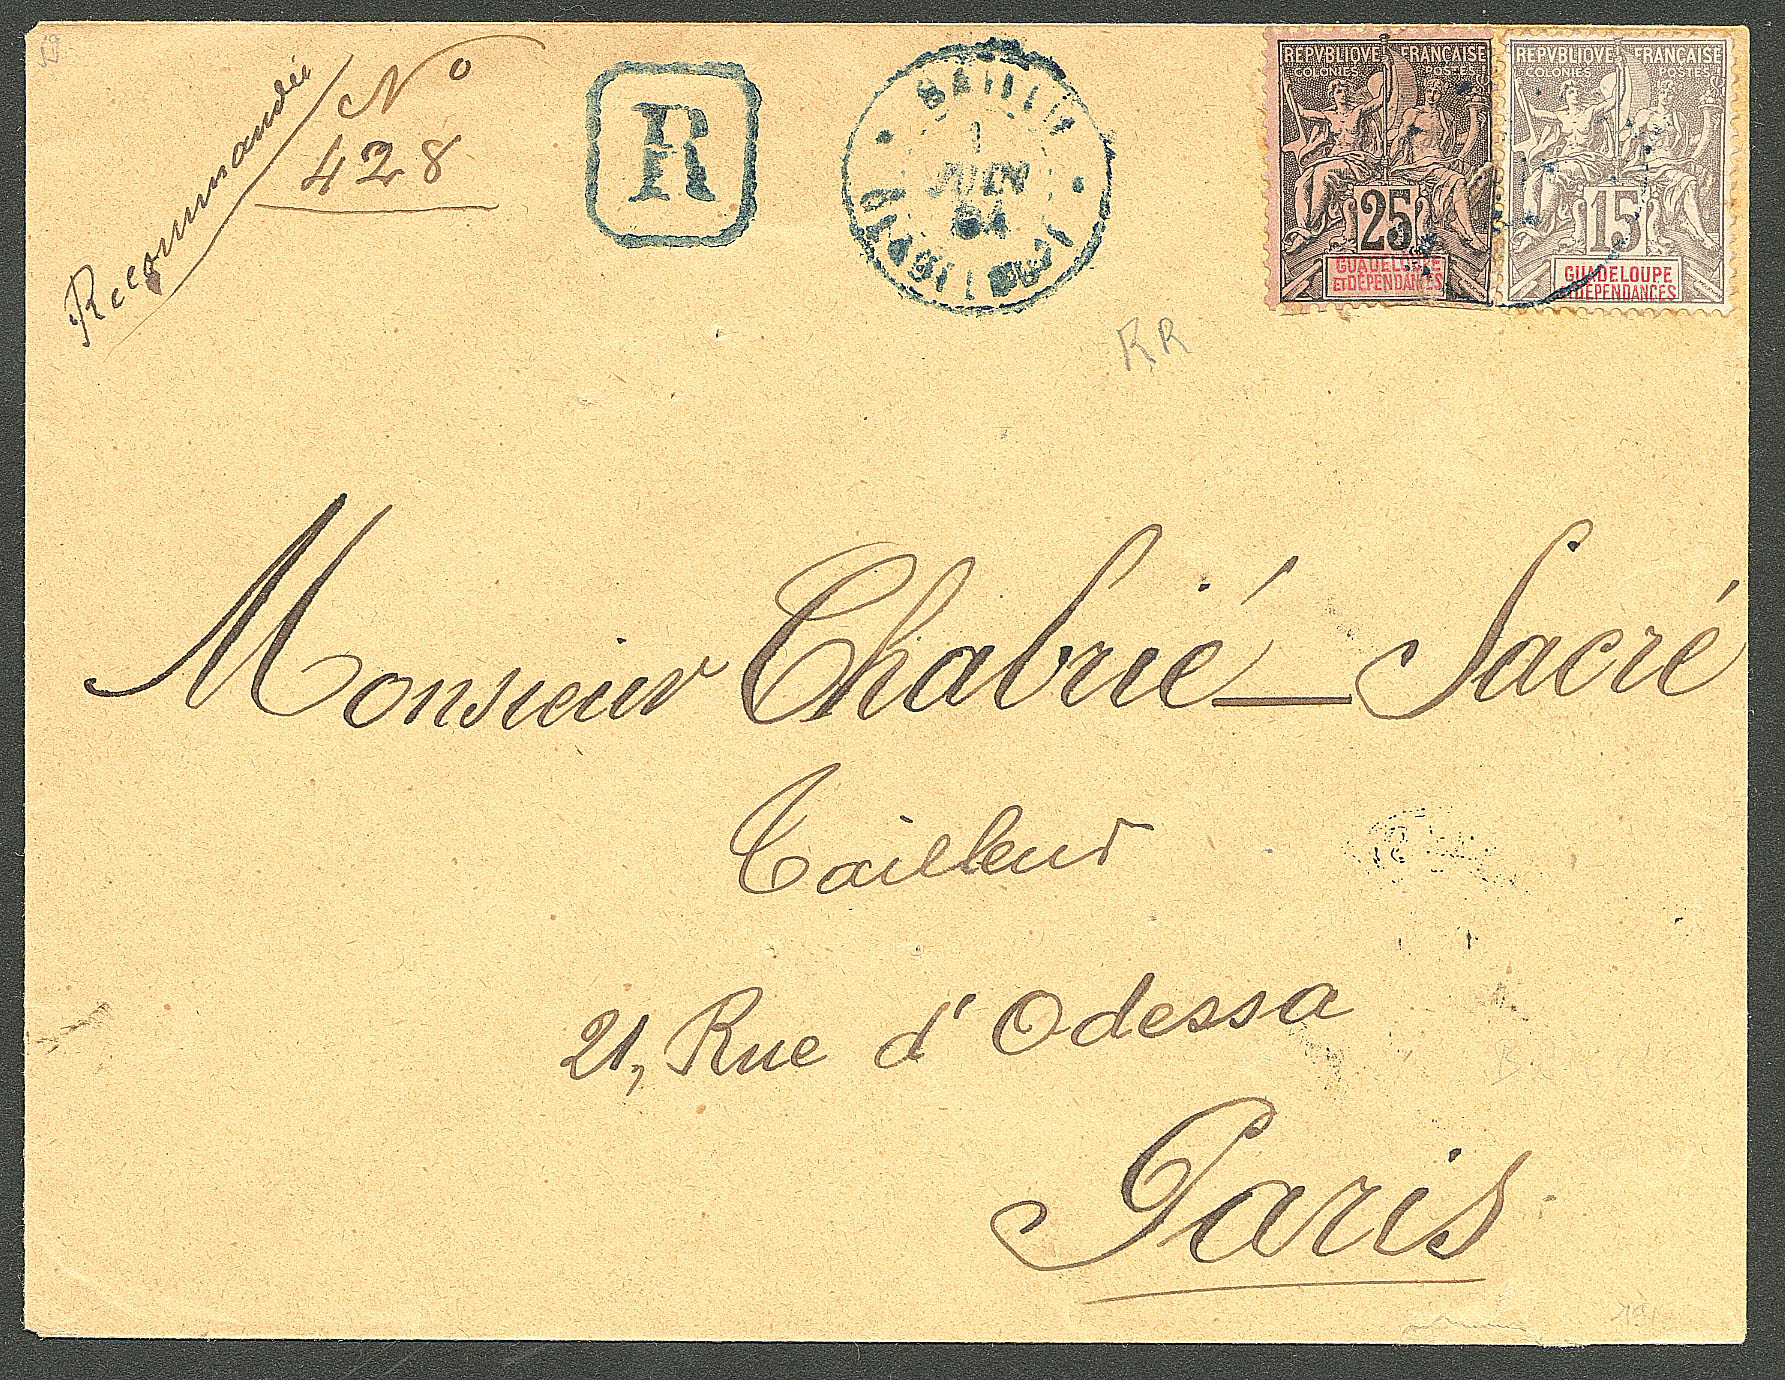 Recommandée
N° 428
R
1
JUIN
REPVBLIQVE FRANÇAISE
COLONIES POSTES
25
GUADELOUPE
ET DÉPENDANCES
REPVBLIQVE FRANÇAISE
COLONIES POSTES
15
GUADELOUPE
ET DÉPENDANCES
RR
Monsieur Chabrié_Sacré
Tailleur
21, Rue d'Odessa
Paris